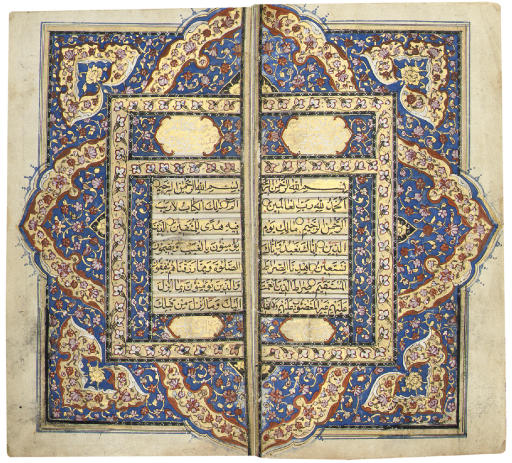 بسم الله الرحمن الرحيم
الحمد لله رب العالمين
الرحمن الرحيم مالك يوم
الدين اياك نعبد واياك
نستعين اهدنا الصراط
المستقيم صراط الذين
المغضوب عليهم ولا
بسم الله الرحمن الرحيم
الم ذلك الكتاب لا ريب
فيه هدى للمتقين الذين
يؤمنون بالغيب ويقيمون
الصلوة ومما رزقناهم ينفقون
والذين يؤمنون بما انزل
اليك وما انزل من قبلك